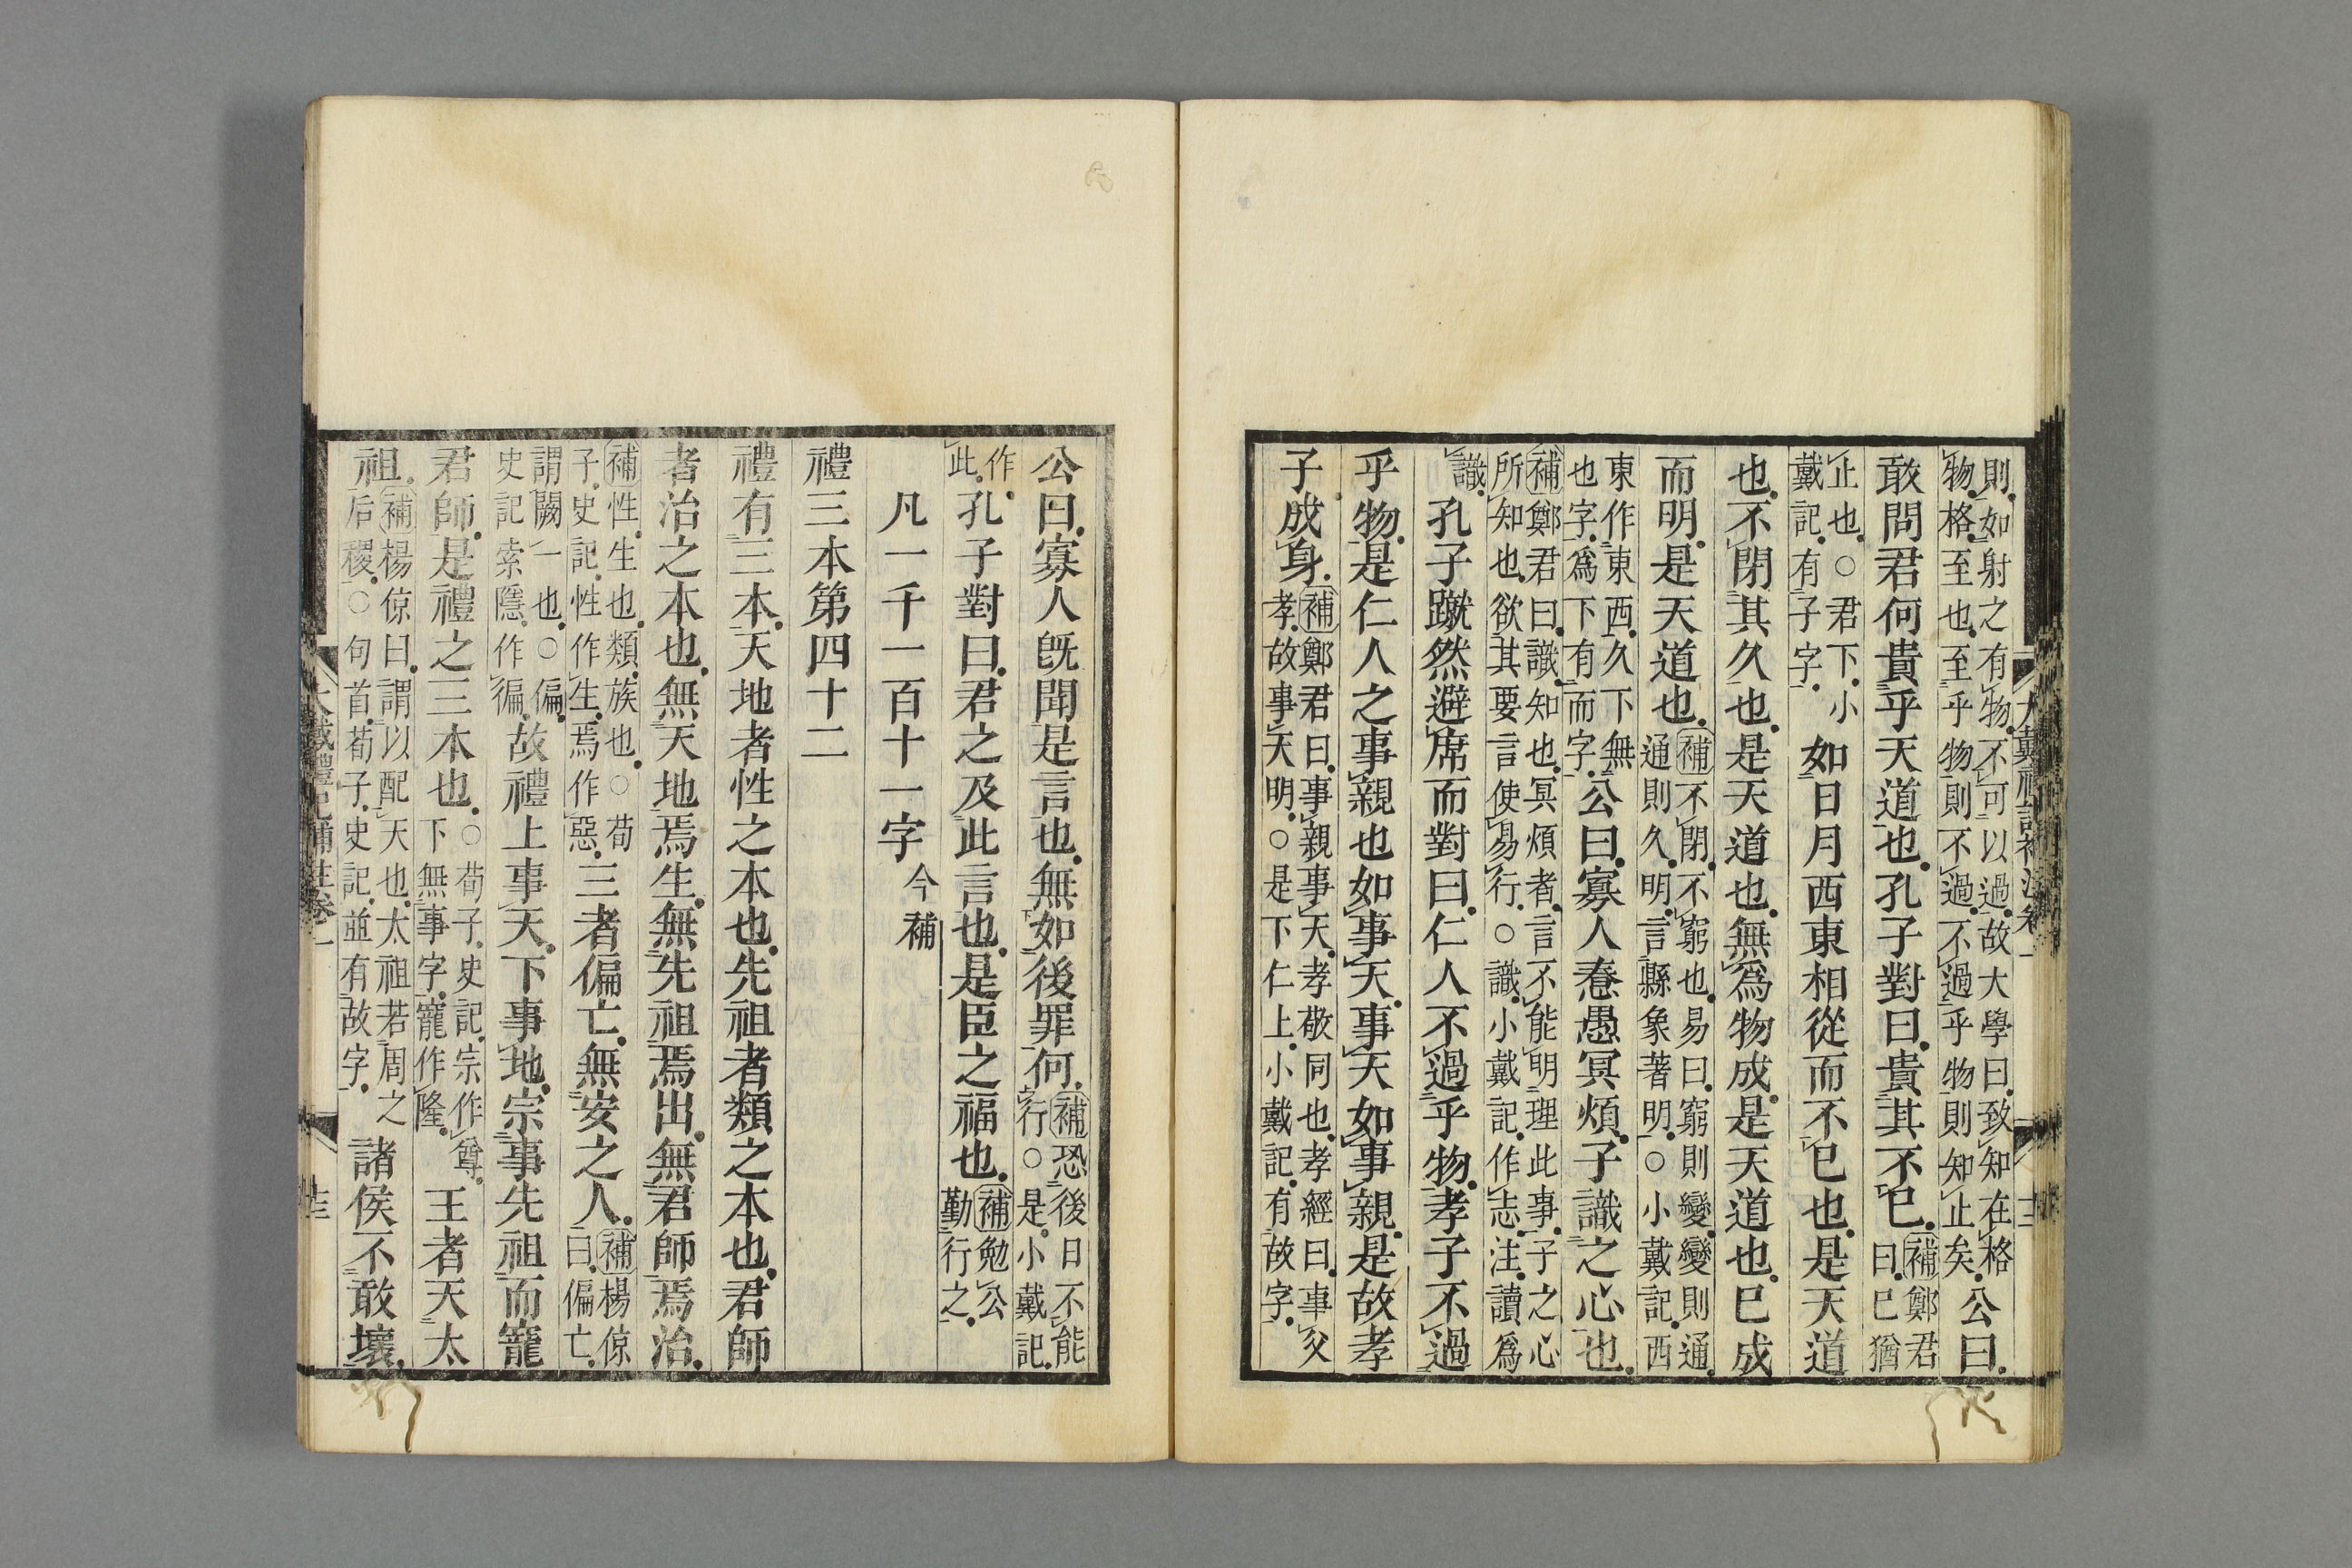 大戴禮記補注卷一
則。如射之有物。不可以過。故大學曰。致知在格
物。格。至也。至乎物則不過。不過乎物則知止矣。公曰。
敢問君何貴乎天道也。孔子對曰。貴其不已。補鄭君
曰。已猶
止也。○君下。小
戴記。有子字。如日月西東相從而不已也。是天道
也。不閉其久也。是天道也。無為物成。是天道也。已成
而明。是天道也。補不閉。不窮也。易曰。窮則變。變則通。
通則久。明。言縣象著明。○小戴記。西
東作東西。久下無
也字。為下有而字。公曰。寡人惷愚冥煩。子識之心也。
補鄭君曰。識。知也。冥煩者。言不能明理此事。子之心
所知也。欲其要言使易行。○識。小戴記。作志。注。讀為
識。孔子蹴然避席而對曰。仁人不過乎物。孝子不過
乎物。是仁人之事親也如事天。事天如事親。是故孝
子成身。補鄭君曰。事親事天。孝敬同也。孝經曰。事父
孝。故事天明。○是下仁上。小戴記。有故字。
公曰。寡人既聞是言也。無如後罪何。補恐後日不能
行。○是。小戴記。
作
此。孔子對曰。君之及此言也。是臣之福也。補勉公
勤行之。
凡一千一百十一字今補
禮三本第四十二
禮有三本。天地者性之本也。先祖者類之本也。君師
者治之本也。無天地焉生。無先祖焉出。無君師焉治。
補性。生也。類。族也。○荀
子。史記。性作生。焉作惡。三者偏亡。無安之人。補楊倞
曰。偏亡。
謂闕一也。○偏。
史記索隱。作徧。故禮上事天。下事地。宗事先祖而寵
君師。是禮之三本也。○荀子。史記。宗作尊。
下無事字。寵作隆。王者天太
祖。補楊倞曰。謂以配天也。太祖若周之
后稷。○句首。荀子。史記。並有故字。諸侯不敢壞。
大戴禮記補註卷一
十三